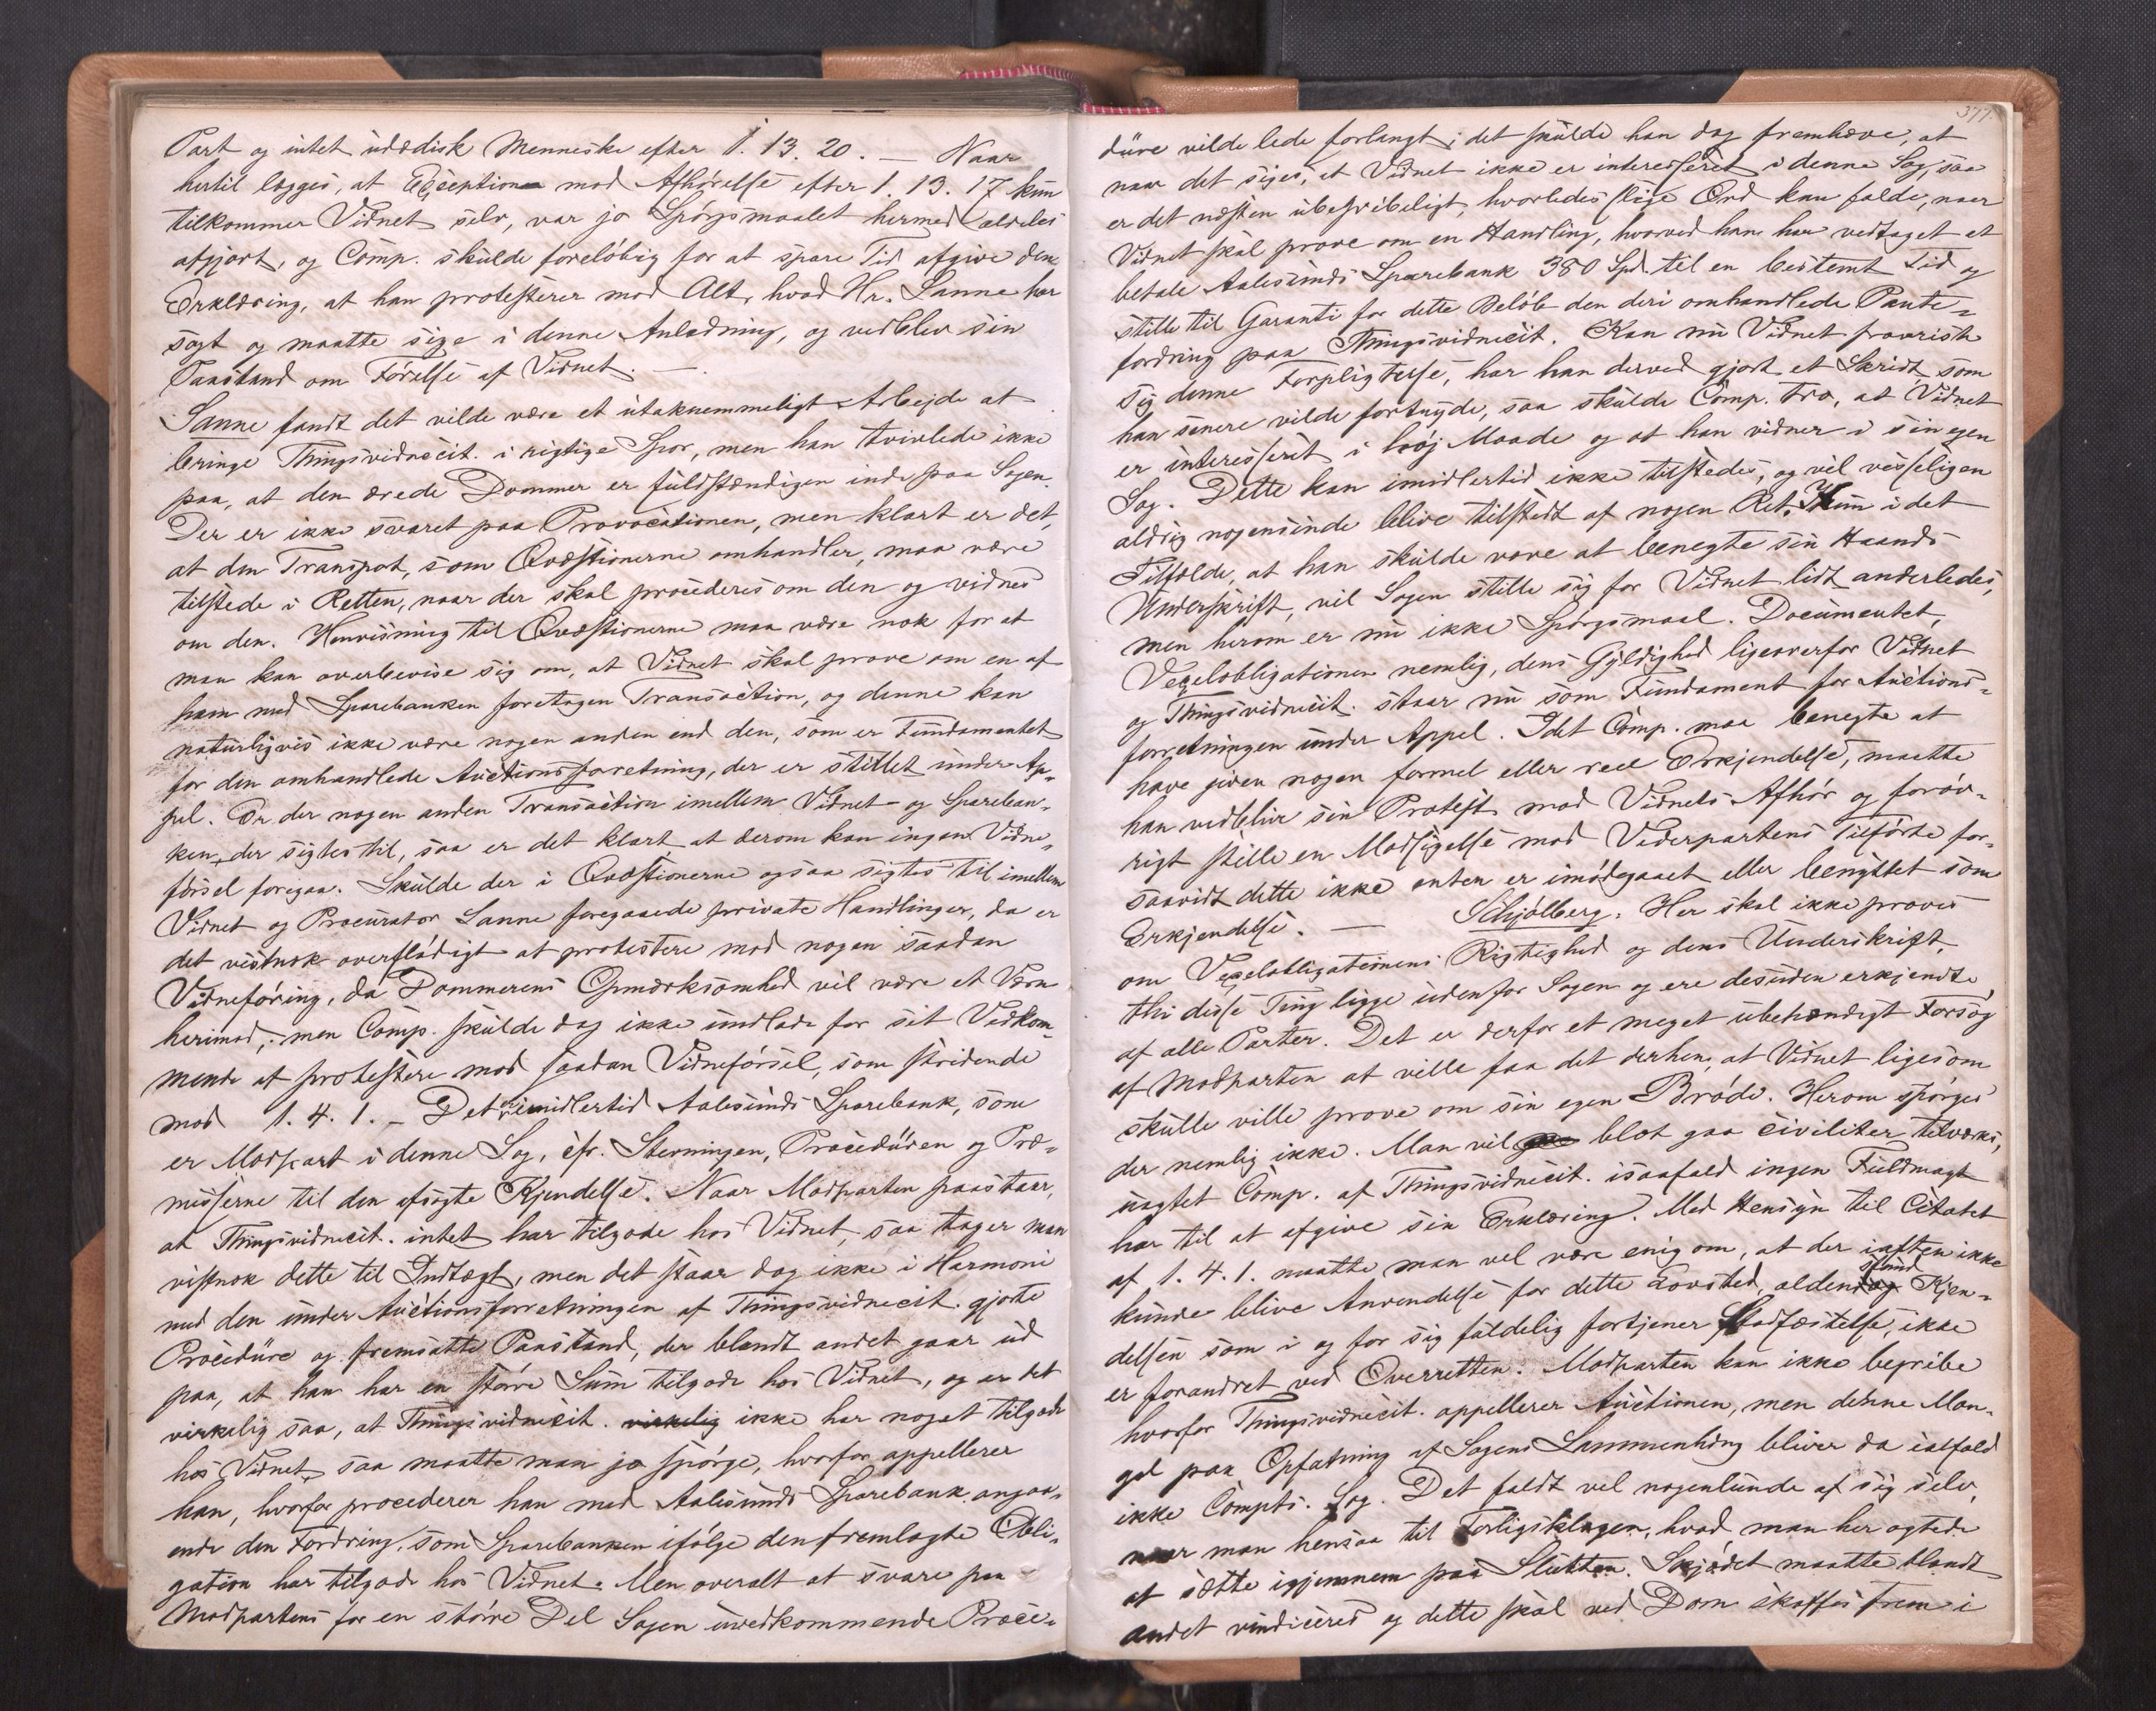 Part og intet udædisk Menneske efter 1. 13. 20. — Naar
hertil lægges, at Exception mod Afhørelse efter 1. 13. 17 kun
tilkommer Vidnet selv, var jo Spørgsmaalet hermed aldeles
afgjort, og Comp. skulde foreløbig for at spare Tid afgive den
Erklæring, at han protesterer mod Alt, hvad Hr. Sanne har
sagt og maatte sige i denne Anledning, og vedblev sin
Paastand om Førelse af Vidnet. —
Sanne fandt det vilde være et utaknemmeligt Arbejde at
bringe Thingsvidnecit. i rigtige Spor, men han tvivlede ikke
paa, at den ærede Dommer er fuldstændigen inde paa Sagen.
Der er ikke svaret paa Provocationen, men klart er det,
at den Transpot, som Qvæstionerne omhandler, maa være
tilstede i Retten, naar der skal procederes om den og vidnes
om den. Henvisning til Qvæstionerne maa være nok for at
man kan overbevise sig om, at Vidnet skal prove om en af
ham med Sparebanken foretagen Transaction, og denne kan
naturligvis ikke være nogen anden end den, som er Fundamentet
for den omhandlede Auctionsforretning, der er stillet under Ap-
pel. Er der nogen anden Transaction imellem Vidnet og Spareban-
ken, der sigtes til, saa er det klart at derom kan ingen Vidne-
førsel foregaa. Skulde der i Qvæstionerne ogsaa sigtes til imellem
Vidnet og Procurator Sanne foregaaede private Handlinger, da er
det vistnok overflødigt at protestere mod nogen saadan
Vidneføring, da Dommerens Opmærksomhed vil være et Værn
herimod, men Comp. skulde dog ikke undlade for sit Vedkom-
mende at protestere mod saadan Vidneførsel, som stridende
mod 1. 4. 1. – Det er imidlertid Aalesunds Sparebank, som
er Modpart i denne Sag, cfr. Stevningen, Proceduren og Præ-
misserne til den afsagte Kjendelse. Naar Modparten paastaar,
at Thingsvidnecit. intet har tilgode hos Vidnet, saa tager man
vistnok dette til Indtægt, men det staar dog ikke i Harmoni
med den under Auctionsforretningen af Thingsvidnecit. gjorte
Procedure og fremsatte Paastand, der blandt andet gaar ud
paa, at han har en større Sum tilgode hos Vidnet, og er det
virkelig saa, at Thingsvidnecit. virkelig ikke har noget tilgode
hos Vidnet, saa maatte man jo spørge, hvorfor appellerer
han, hvorfor procederer han med Aalesunds Sparebank angaa-
ende den Fordring, som Sparebanken ifølge den fremlagte Obli-
gation har tilgode hos Vidnet. Men overalt at svare paa
Modpartens for en større Del Sagen uvedkommende Proce-
377.
dure vilde lede forlangt; det skulde han dog fremhæve, at
naar det siges, at Vidnet ikke er interesseret i denne Sag, saa
er det næsten ubegribeligt, hvorledes slige Ord kan falde, naar
Vidnet skal prove om en Handling, hvorved han har vedtaget at
betale Aalesunds Sparebank 380 Spd. til en bestemt Tid og
stille til Garanti for dette Beløb den deri omhandlede Pante-
fordring paa Thingsvidnecit. Kan nu Vidnet
sig denne Forpligtelse, har han derved gjort et Skridt, som
han senere vilde fortryde, saa skulde Comp. tro, at Vidnet
er interesseret i høj Maade og at han vidner i sin egen
Sag. Dette kan imidlertid ikke tilstedes, og vil visseligen
aldrig nogensinde blive tilstedt af nogen Ret. Kun i det
Tilfælde, at han skulde være at benegte sin Haands
Underskrift, vil Sagen stille sig for Vidnet lidt anderledes,
men herom er nu ikke Spørgsmaal. Documentet,
Vexelobligationen nemlig, dens Gyldighed ligeoverfor Vidnet
og Thingsvidnecit. staar nu som Fundament for Auctions-
forretningen under Appel. Idet Comp. maa benegte at
have given nogen formel eller reel Erkjendelse, maatte
han vedblive sin Protest mod Vidnets Afhør og forøv-
rigt stille en Modsigelse mod Vederpartens Tilførte for-
saavidt dette ikke enten er imødegaaet eller benyttet som
Erkjendelse. — Schjølberg. Her skal ikke proves
om Vexelobligationens Rigtighed og dens Underskrift,
thi disse Ting ligge udenfor Sagen og ere desuden erkjendte
af alle Parter. Det er derfor et meget ubehændigt Forsøg
af Modparten at ville faa det derhen, at Vidnet ligesom
skulle ville prove om sin egen Brøde. Herom spørges
der nemlig ikke. Man vil blot gaa civiliter tilværks,
uagtet Comp. af Thingsvidnecit. isaafald ingen Fuldmagt
har til at afgive sin Erklæring. Med Hensyn til Citatet
af 1. 4. 1. maatte man vel være enig om, at der iaften ikke
kunde blive Anvendelse for dette Lovsted, aldenstund Kjen-
delsen som i og for sig fuldelig fortjener Stadfæstelse, ikke
er forandret ved Overretten. Modparten kan ikke begribe
hvorfor Thingsvidnecit. appellerer Auctionen, men denne Man-
gel paa Opfatning af Sagens Sammenhæng bliver da ialfald
ikke Compts. Sag. Det faldt vel nogenlunde af sig selv,
naar man hensaa til Forligsklagen, hvad man her agtede
at sætte igjennem paa Slutten. Skjødet maatte blandt
andet vindiceres og dette skal ved Dom skaffes frem i